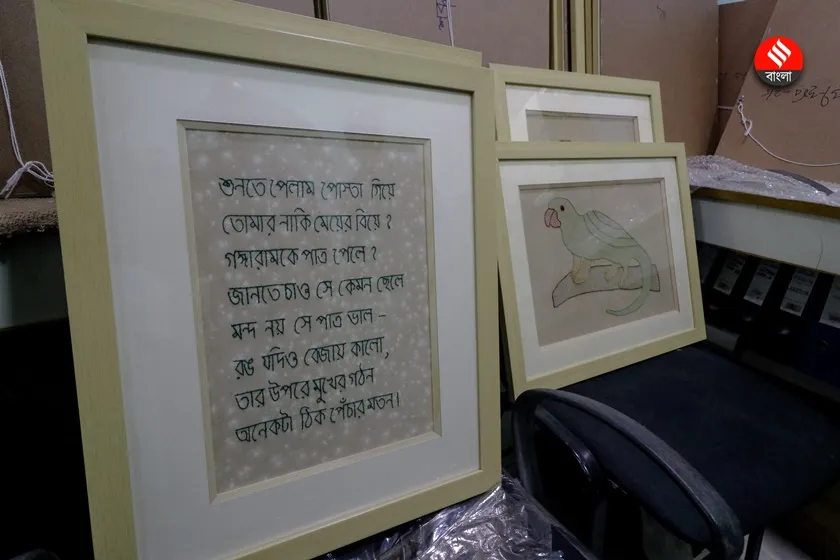 শুনতে পেলাম পোস্তা গিয়ে
তোমার নাকি মেয়ের বিয়ে ?
গঙ্গারামকে পাত্র পেলে ?
জানতে চাও সে কেমন ছেলে
মন্দ নয় সে পাত্র ভাল –
রঙ যদিও বেজায় কালো,
তার উপরে মুখের গঠন
অনেকটা ঠিক পেঁচার মতন।
বাংলা